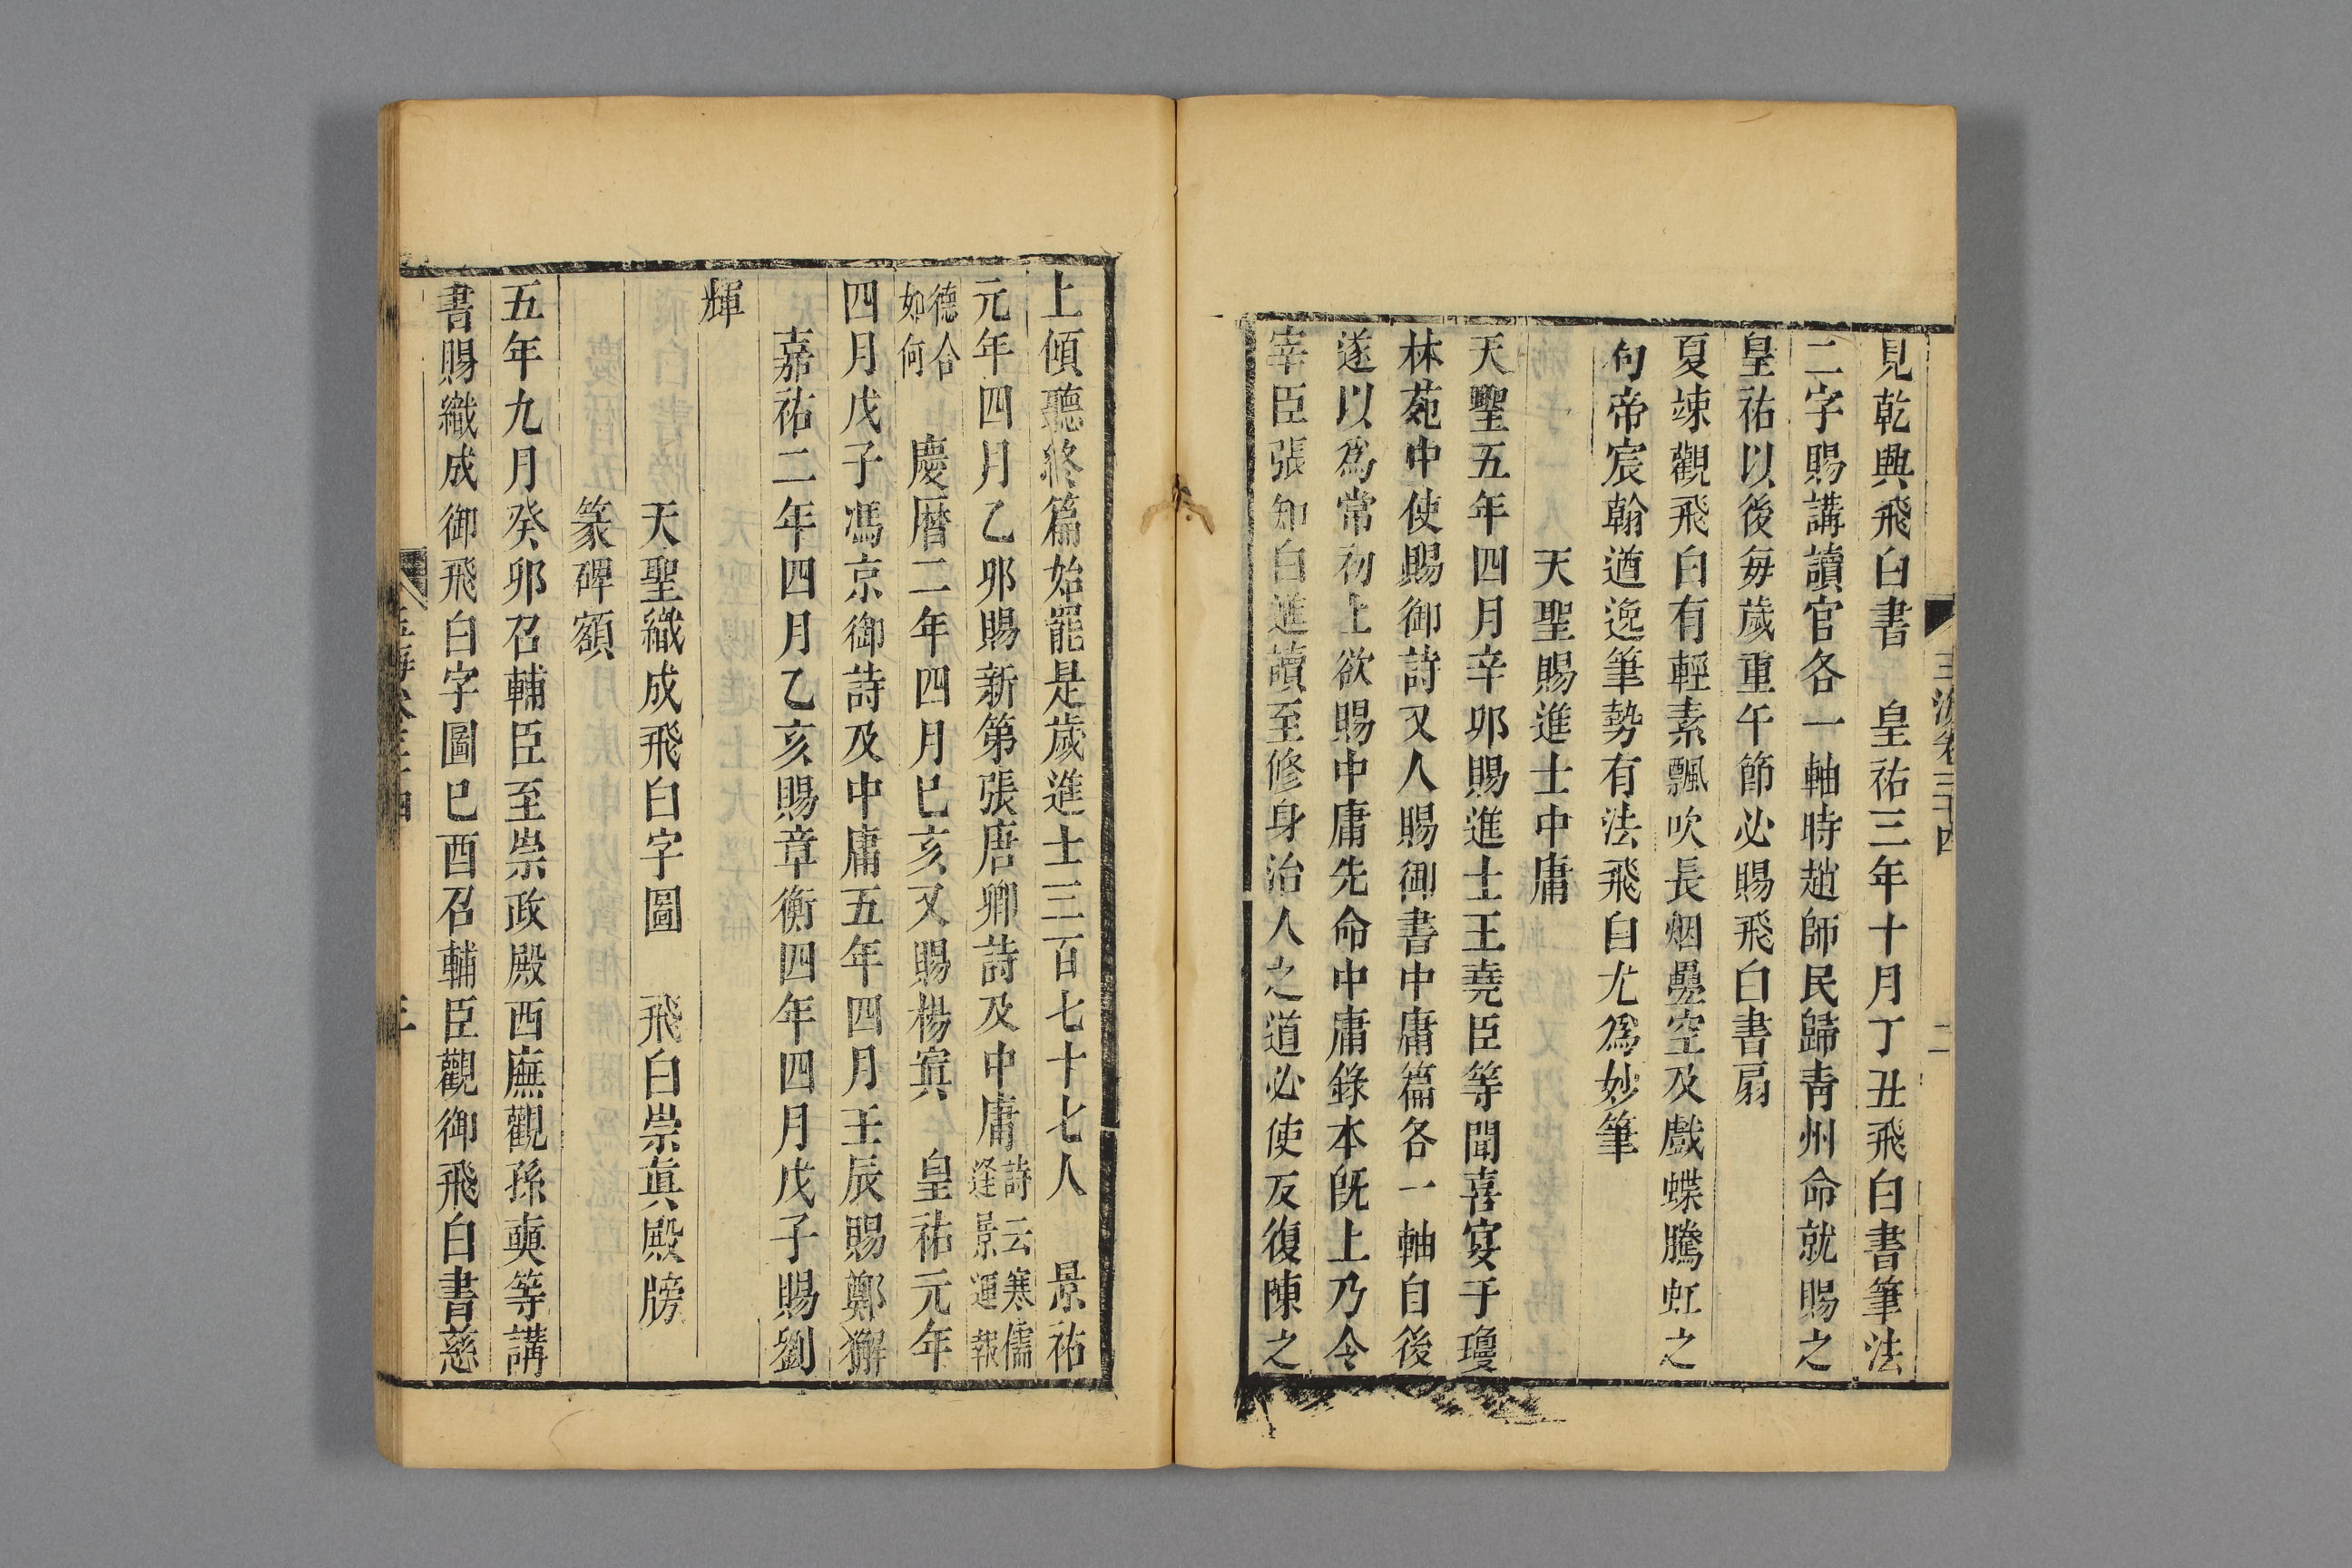 玉海卷三十四 二
見乾興飛白書 皇祐三年十月丁丑飛白書筆法
二字賜講讀官各一軸時趙師民歸青州命就賜之
皇祐以後每歲重午節必賜飛白書扇
夏竦觀飛白有輕素飄吹長烟疊空及戲蝶騰虹之
句帝宸翰遒逸筆勢有法飛白尤為妙筆
天聖賜進士中庸
天聖五年四月辛卯賜進士王堯臣等聞喜宴于瓊
林苑中使賜御詩又人賜御書中庸篇各一軸自後
遂以為常初上欲賜中庸先命中庸錄本既上乃令
宰臣張知白進讀至修身治人之道必使反復陳之
上傾聽終篇始罷是歲進士三百七十七人 景祐
元年四月乙卯賜新第張唐卿詩及中庸詩云寒儒逢景運報
德合如何 慶曆二年四月已亥又賜楊寘 皇祐元年
四月戊子馮京御詩及中庸五年四月壬辰賜鄭獬
嘉祐二年四月乙亥賜章衡四年四月戊子賜劉
輝
天聖織成飛白字圖 飛白崇真殿牓
篆碑額
五年九月癸卯召輔臣至崇政殿西廡觀孫奭等講
書賜織成御飛白字圖已酉召輔臣觀御飛白書慈